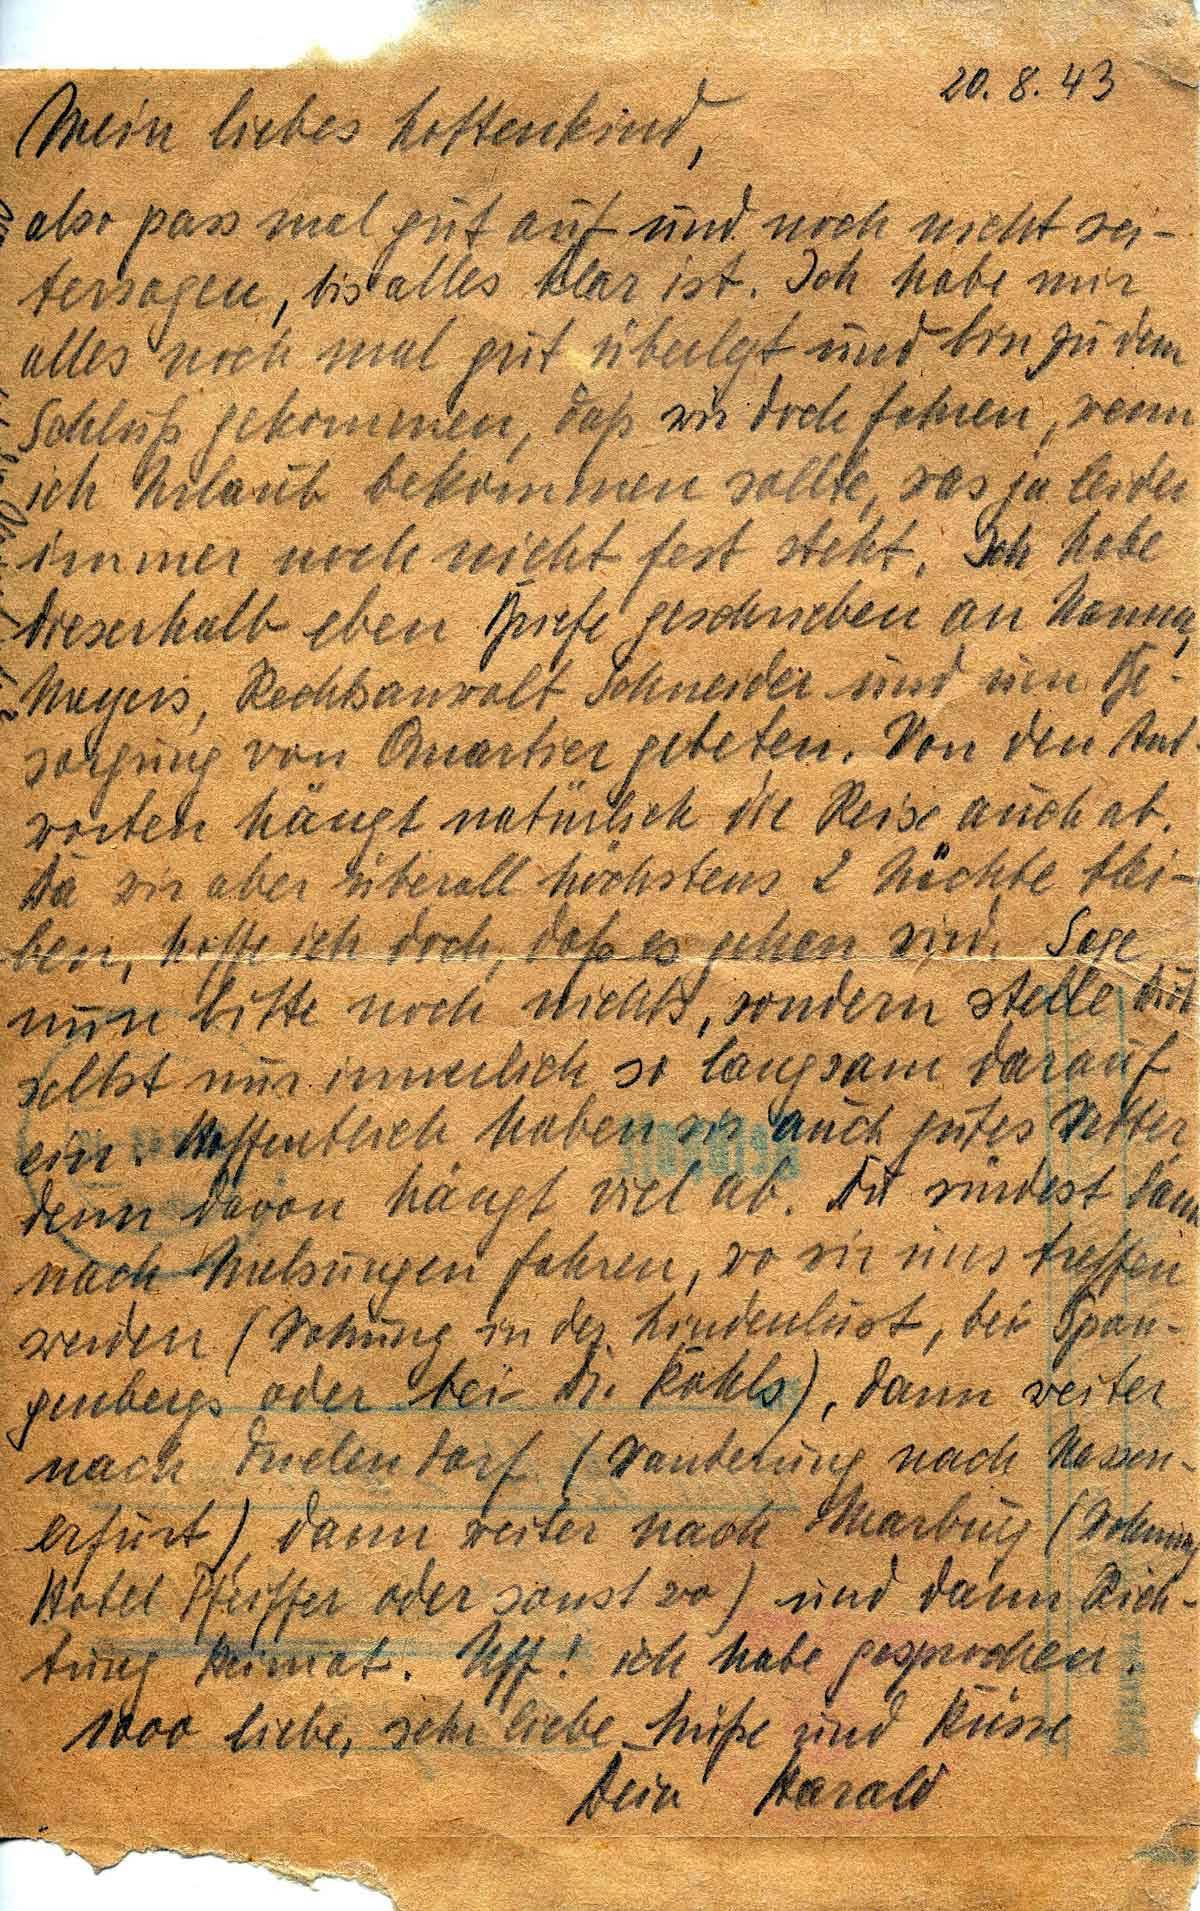 20. 8. 43
Mein liebes Lottenkind,
also pass mal gut auf und noch nicht wei-
tersagen, bis alles klar ist. Ich habe mir
alles noch mal gut überlegt und bin zu dem
Schluß gekommen, daß wir doch fahren, wenn
ich Urlaub bekommen sollte, was ja leider
immer noch nicht fest steht. Ich habe
dieserhalb eben Briefe geschrieben an Nanna,
Meyers, Rechtsanwalt Schneider und um Be-
sorgung von Quartier gebeten. Von den Ant-
worten hängt natürlich die Reise auch ab.
Da wir aber überall höchstens 2 Nächte blei-
ben, hoffe ich doch, daß es gehen wird. Sage
nun bitte noch nichts, sondern stelle Dich
selbst nur innerlich so langsam darauf
ein. Hoffentlich haben wir auch gutes Wetter,
denn davon hängt viel ab. Du würdest dann
nach Melsungen fahren, wo wir uns treffen
werden (Wohnung in der Lindenlust, bei Span-
genbergs oder bei Dr. Kohls), dann weiter
nach (Wanderung nach Nassen-
erfurt), dann weiter nach Marburg (Wohnung
Hotel Pfeiffer oder sonst wo) und dann Rich-
tung Heimat. Uff! ich habe gesprochen.
1000 liebe, sehr liebe Grüße und Küsse
Dein Harald